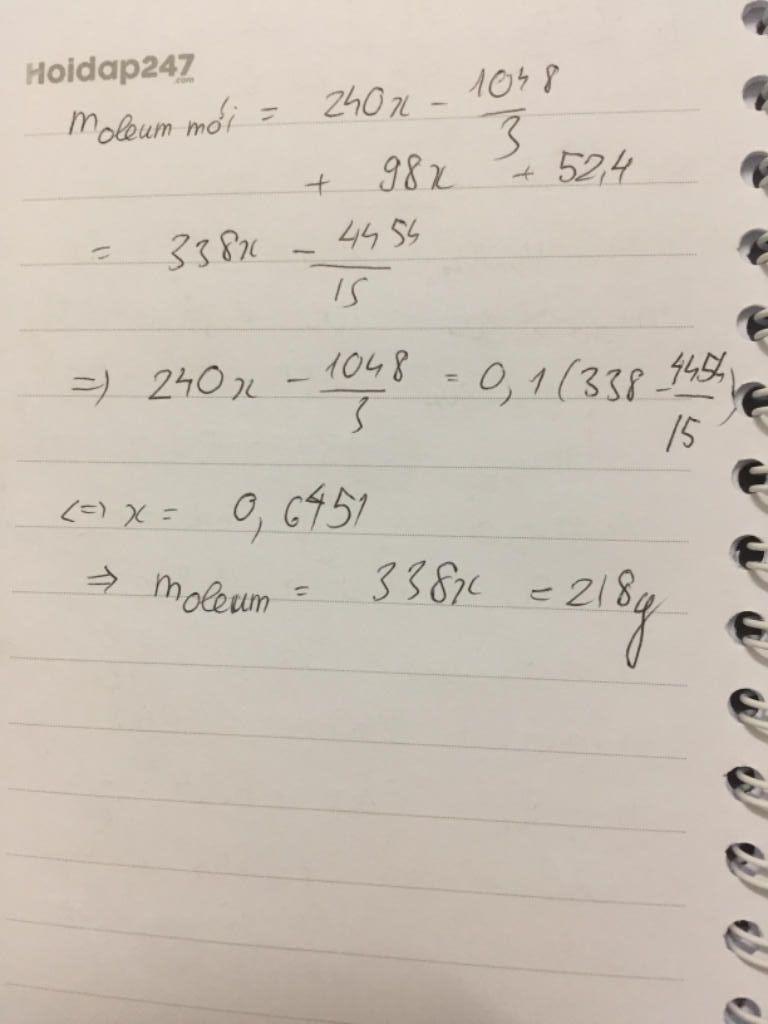 Hoidap247
.com
m oleum mới = 240x - 1048/3
+ 98x + 52,4
= 338x - 4454/15
=> 240x - 1048/3 = 0,1(338 - 4454/15)
<=> x = 0,6451
=> m oleum = 338x = 218g